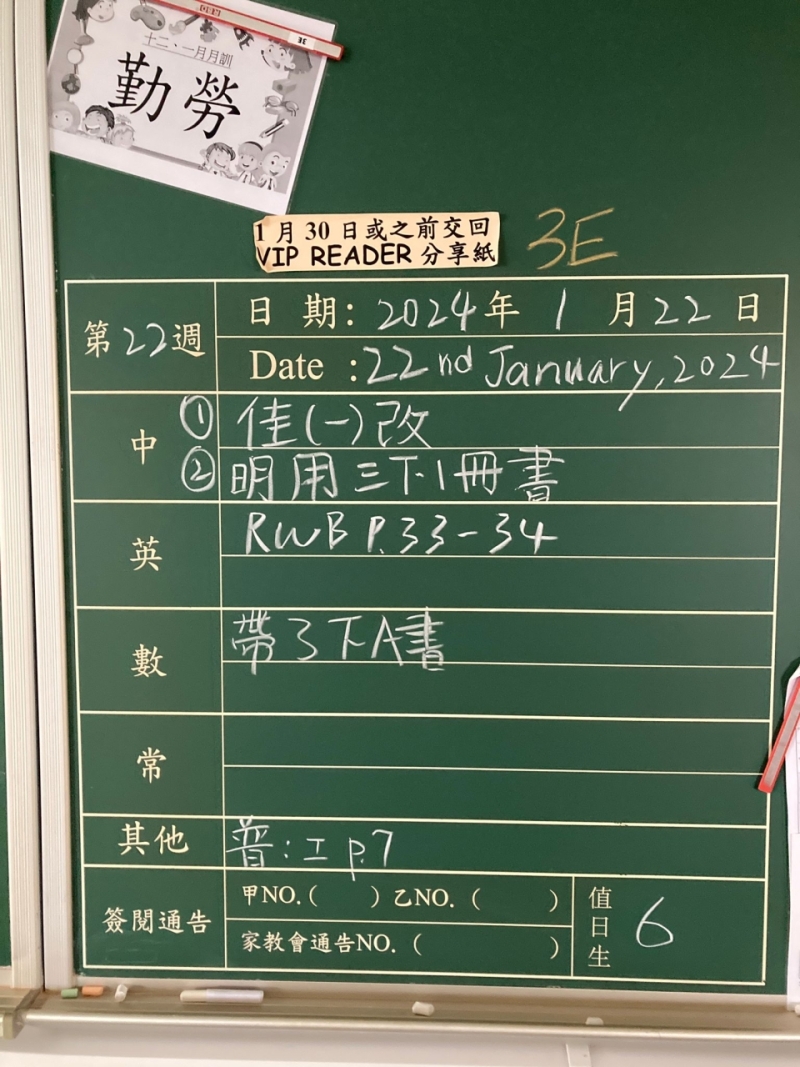 十二、一月月訓
勤勞
3E
1月30日或之前交回
VIP READER 分享紙
3E
第22週
日期: 2024年1月22日
Date : 22nd January, 2024
中
① 佳(一)改
② 明用三下.1冊書
英
RWB P.33-34
數
帶3下A書
常
其他
普: 工 p.7
簽閱通告
甲NO.( ) 乙NO. ( )
家教會通告NO. ( )
值日生
6